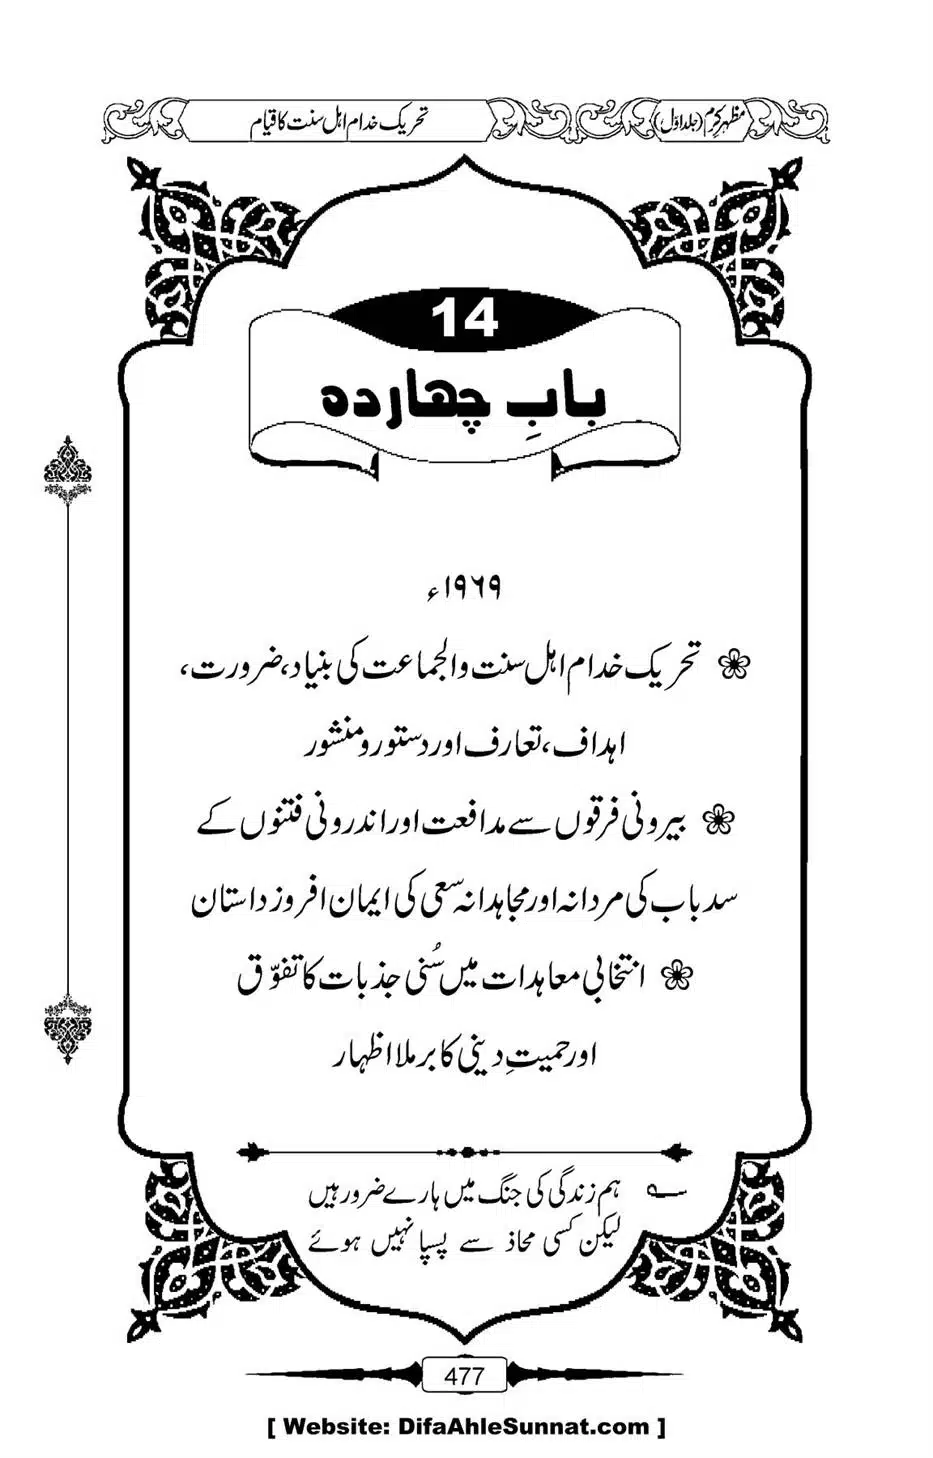 مظہرِ کرم (جلد اوّل)
تحریک خدام اہل سنت کا قیام
14
بابِ چھاردہ
۱۹۶۹ء
تحریک خدام اہل سنت والجماعت کی بنیاد، ضرورت،
اہداف، تعارف اور دستور و منشور
بیرونی فرقوں سے مدافعت اور اندرونی فتنوں کے
سدباب کی مردانہ اور مجاہدانہ سعی کی ایمان افروز داستان
انتخابی معاہدات میں سُنی جذبات کا تفوّق
اور حمیتِ دینی کا برملا اظہار
ہم زندگی کی جنگ میں ہارے ضرور ہیں
لیکن کسی محاذ سے پسپا نہیں ہوئے
477
[ Website: DifaAhleSunnat.com ]